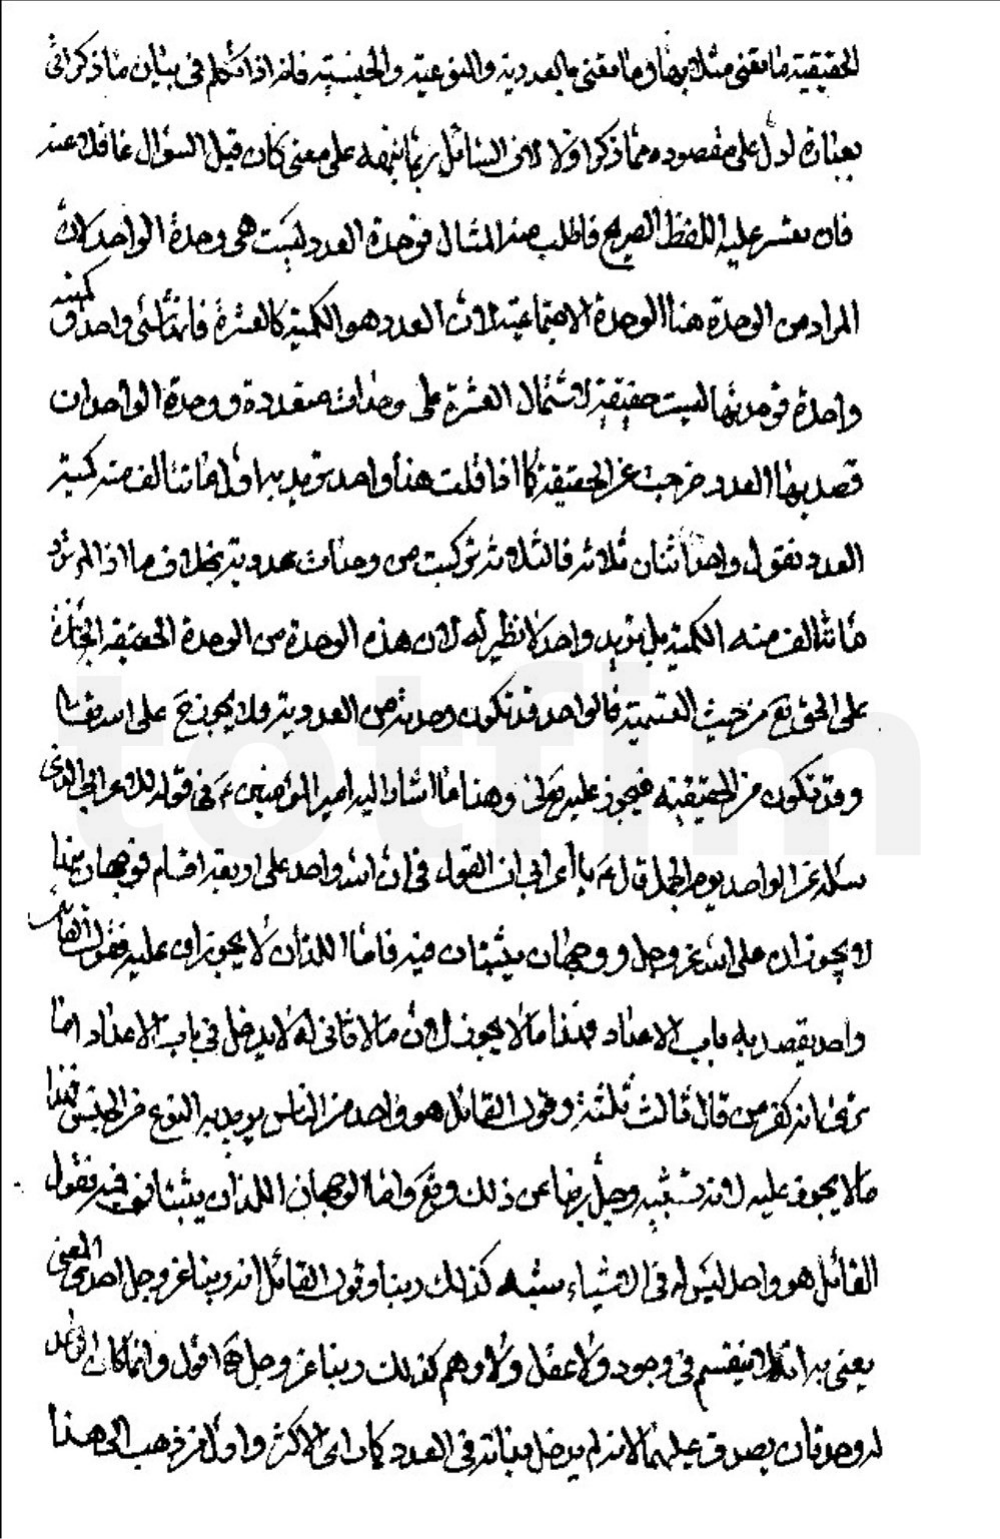 الحقيقية ما تعني مثلا بها وما تعني بالعددية والنوعية والجنسية فانه اذا تكلم في بيان ما ذكر اتى
بعبارة ادل على مقصوده مما ذكر اولا لان السائل ربما ينبهه على معنى كان قبل السؤال غافلا عنه
فان تعسر عليه اللفظ الصريح فاطلب منه المثال فوحدة العدد ليست هي وحدة الواحد لان
المراد من الوحدة هنا الوحدة الاجتماعية لان العدد هو الكمية كالعشرة فانها شئ واحد وكمية
واحدة فوحدتها ليست حقيقية لاشتمال العشرة على وحدات متعددة ووحدة الواحد ان
قصد بها العدد خرجت عن الحقيقة كما اذا قلت هذا واحد تريد به اول ما تتألف منه كمية
العدد تقول واحد اثنان ثلاثة فالثلاثة تركبت من وحدات عددية بخلاف ما اذا لم ترد
ما تتألف منه الكمية بل تريد واحد لا نظير له لان هذه الوحدة من الوحدة الحقيقة الجائزة
على الحق تع من حيث التسمية فالواحد قد تكون وحدته من العددية فلا يجوز ح على الله تعالى
وقد تكون من الحقيقية فيجوز عليه تعالى وهذا ما اشار اليه امير المؤمنين ع في قوله للاعرابي الذي
سئله عن الواحد يوم الجمل قال ع يا أعرابي ان القول في ان الله واحد على اربعة اقسام فوجهان منها
لا يجوزان على الله عز وجل ووجهان يثبتان فيه فاما اللذان لا يجوزان عليه فقول القائل
واحد يقصد به باب الاعداد فهذا ما لا يجوز لان ما لا ثاني له لا يدخل في باب الاعداد اما
ترى انه كفر من قال ثالث ثلثة وقول القائل هو واحد من الناس يريد به النوع من الجنس فهذا
ما لا يجوز عليه لانه تشبيه وجل ربنا عن ذلك وتع واما الوجهان اللذان يثبتان فيه فقول
القائل هو واحد ليس له في الاشياء شبه كذلك ربنا وقول القائل انه ربنا عز وجل احدي المعنى
يعني به انه لا ينقسم في وجود ولا عقل ولا وهم كذلك ربنا عز وجل ه اقول وانما كان
له وجهان يصدق عليهما لانه لم يدخل بذاته في العدد كان اي الاكثر واول من ذهب الى هذا